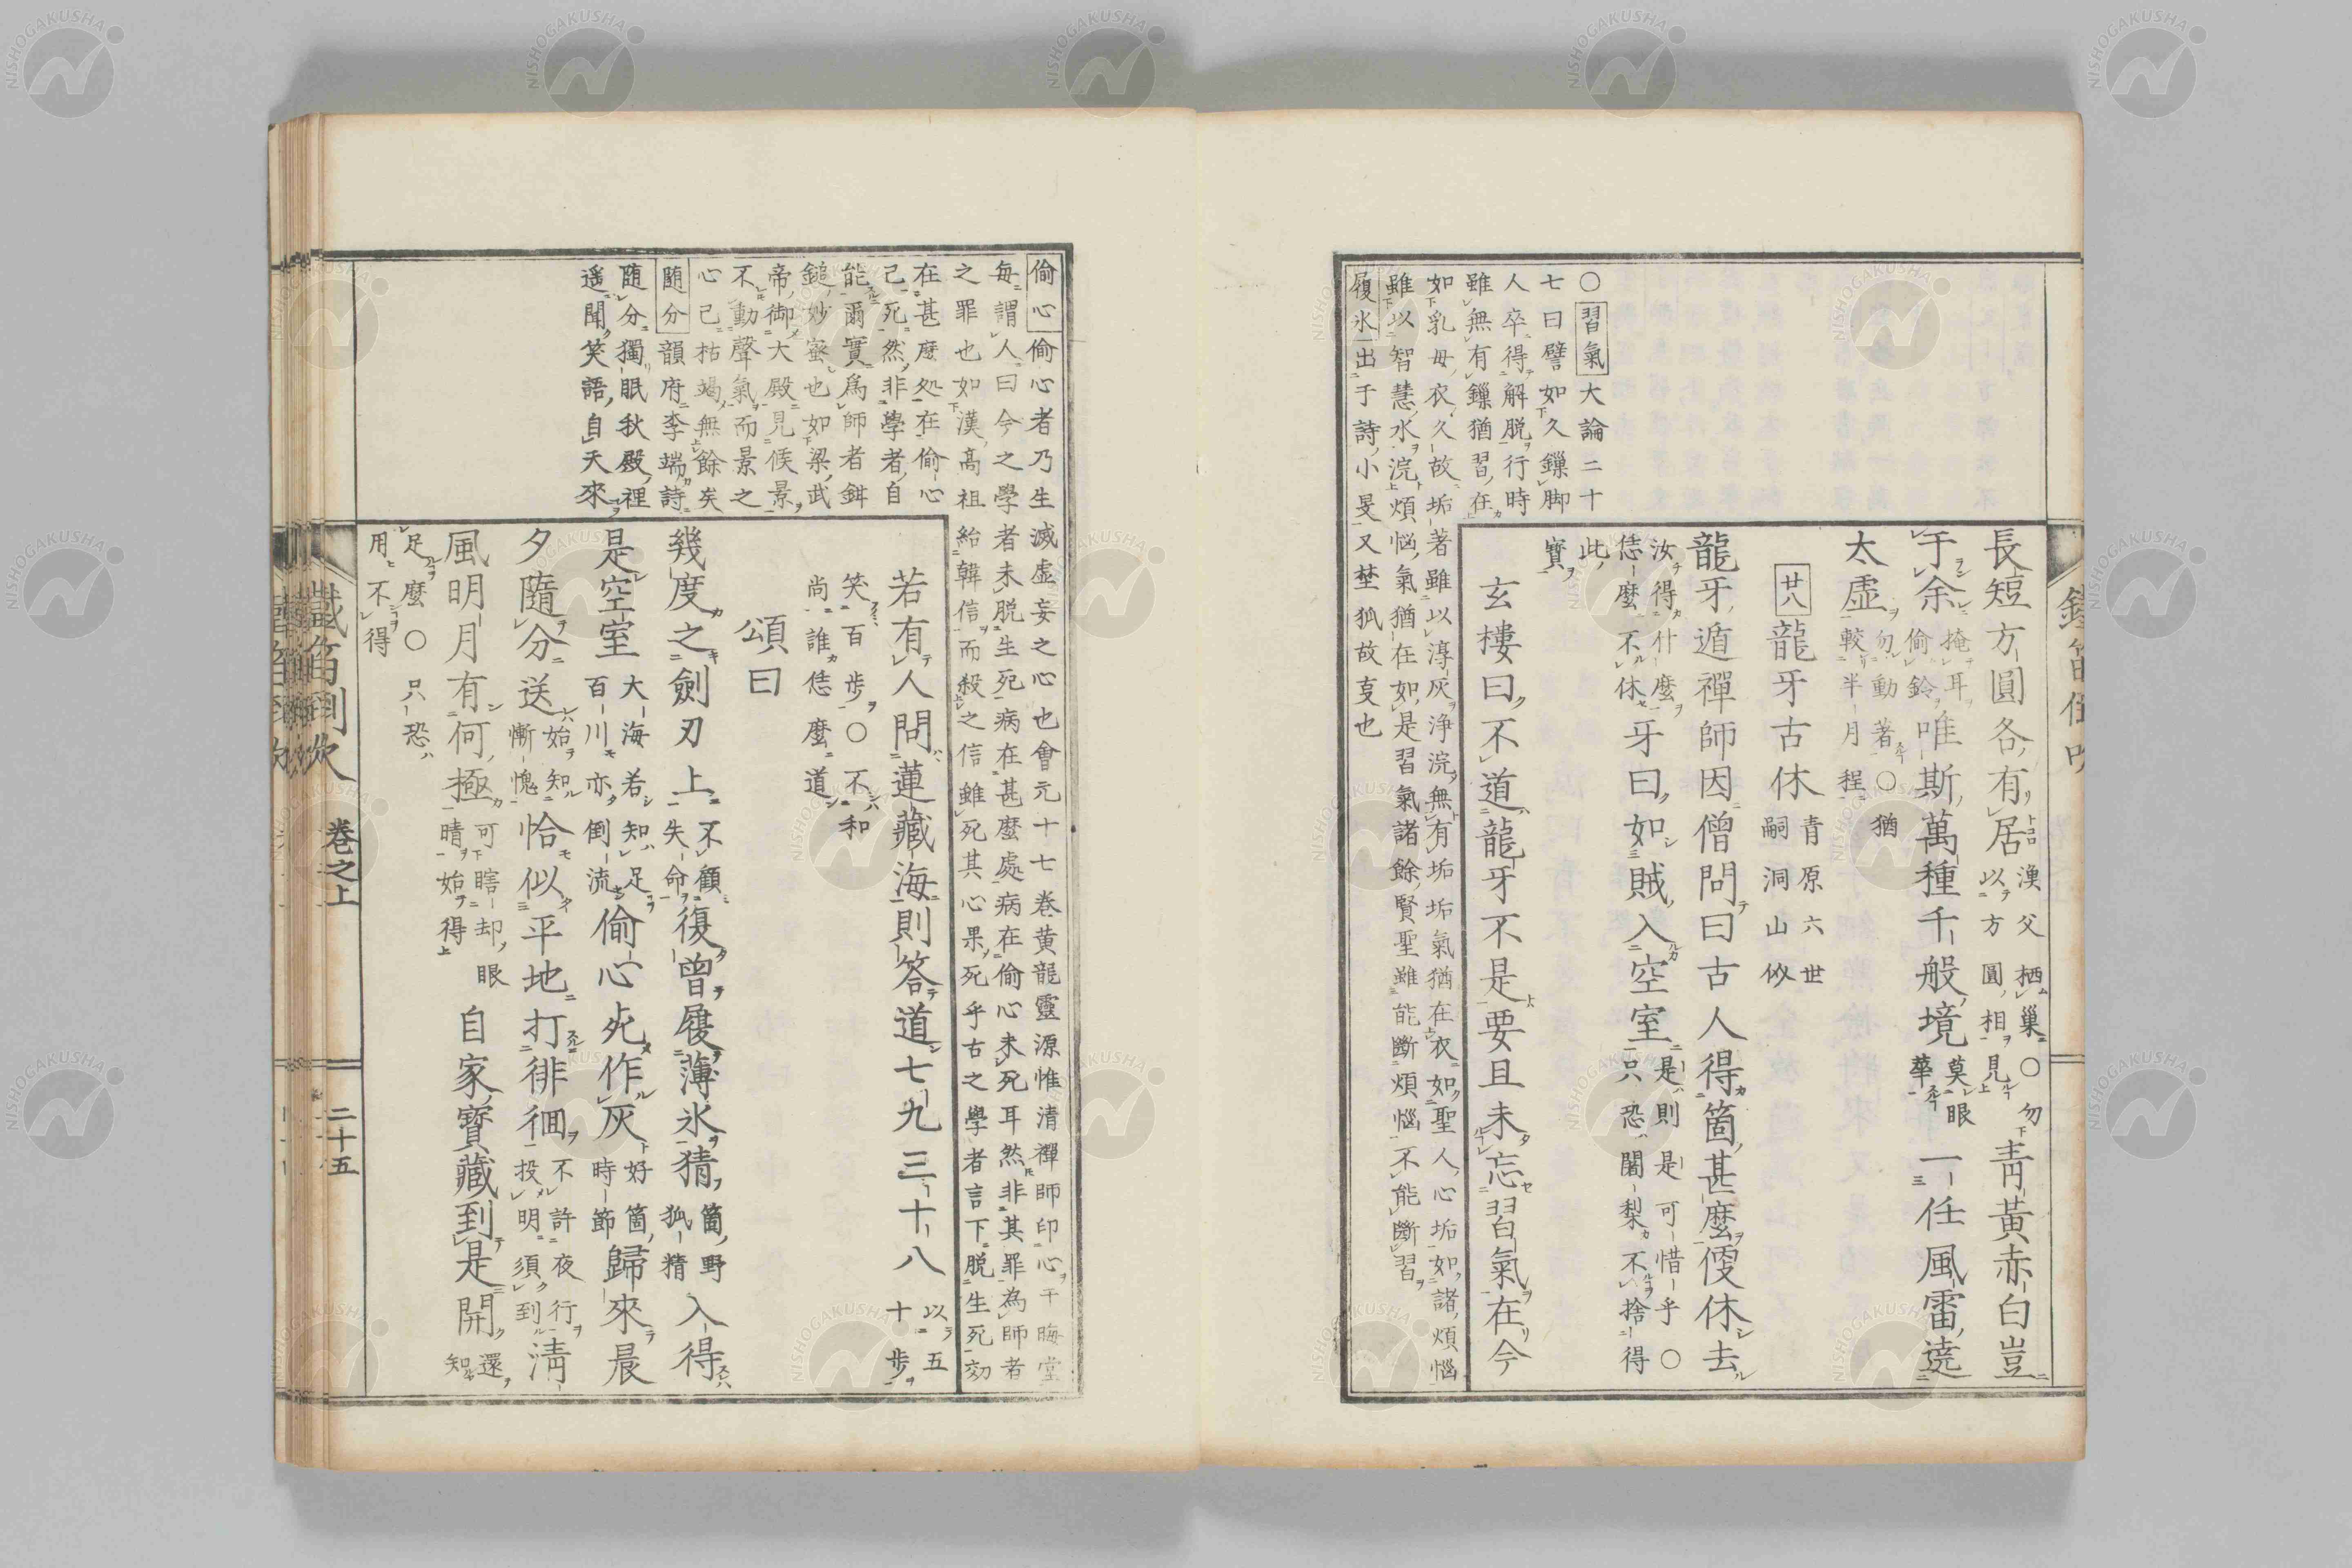 長短方圓各有居漢父栖巢〇勿以方圓相見青黃赤白豈
于余掩耳偷鈴唯斯萬種千般境莫眼華一任風雷遶
太虛勿動著〇猶較半月程
廿八龍牙古休青原六世嗣洞山价
龍牙遁禪師因僧問曰古人得箇甚麼便休去
汝得什麼恁麼不休牙曰如賊入空室是則是可惜乎〇只恐闍梨不捨得
此寶
玄樓曰不道龍牙不是要且未忘習氣在今
〇習氣大論二十
七曰譬如久鏁脚
人卒得解脱行時
雖無有鏁猶習在
如乳母衣久故垢著雖以淳灰浄浣無有垢垢氣猶在衣如聖人心垢如諸煩惱
雖以智慧水浣煩惱氣猶在如是習氣諸餘賢聖雖能斷煩惱不能斷習
履氷出于詩小旻又埜狐故叓也
鐵笛倒吹
偷心偷心者乃生滅虛妄之心也會元十七卷黄龍靈源惟清禪師印心于晦堂
毎謂人曰今之學者未脱生死病在甚麼處病在偷心未死耳然非其罪為師者
之罪也如漢高祖紿韓信而殺之信雖死其心果死乎古之學者言下脱生死効
在甚麼処在偷心
己死然非學者自
能爾實爲師者鉗
鎚妙蜜也如梁武
帝御大殿見侯景
不動聲氣而景之
心已枯竭無餘矣
隨分韻府李端詩
随分獨眠秋殿裡
遥聞笑語自天來
若有人問蓮藏海則答道七九三十八以五十歩
笑百歩〇不和尚誰恁麼道
頌曰
幾度之劍刃上不顧失命復曾履薄氷猜箇野狐精入得
是空室大海若知足百川亦倒流偷心死作灰好箇時節歸來晨
夕隨分送始知慚愧恰似平地打徘徊不許夜行投明須到淸
風明月有何極可瞎却眼晴始得自家寶藏到是開還知
足麼〇只恐用不得
鐵笛倒吹 卷之上 二十五